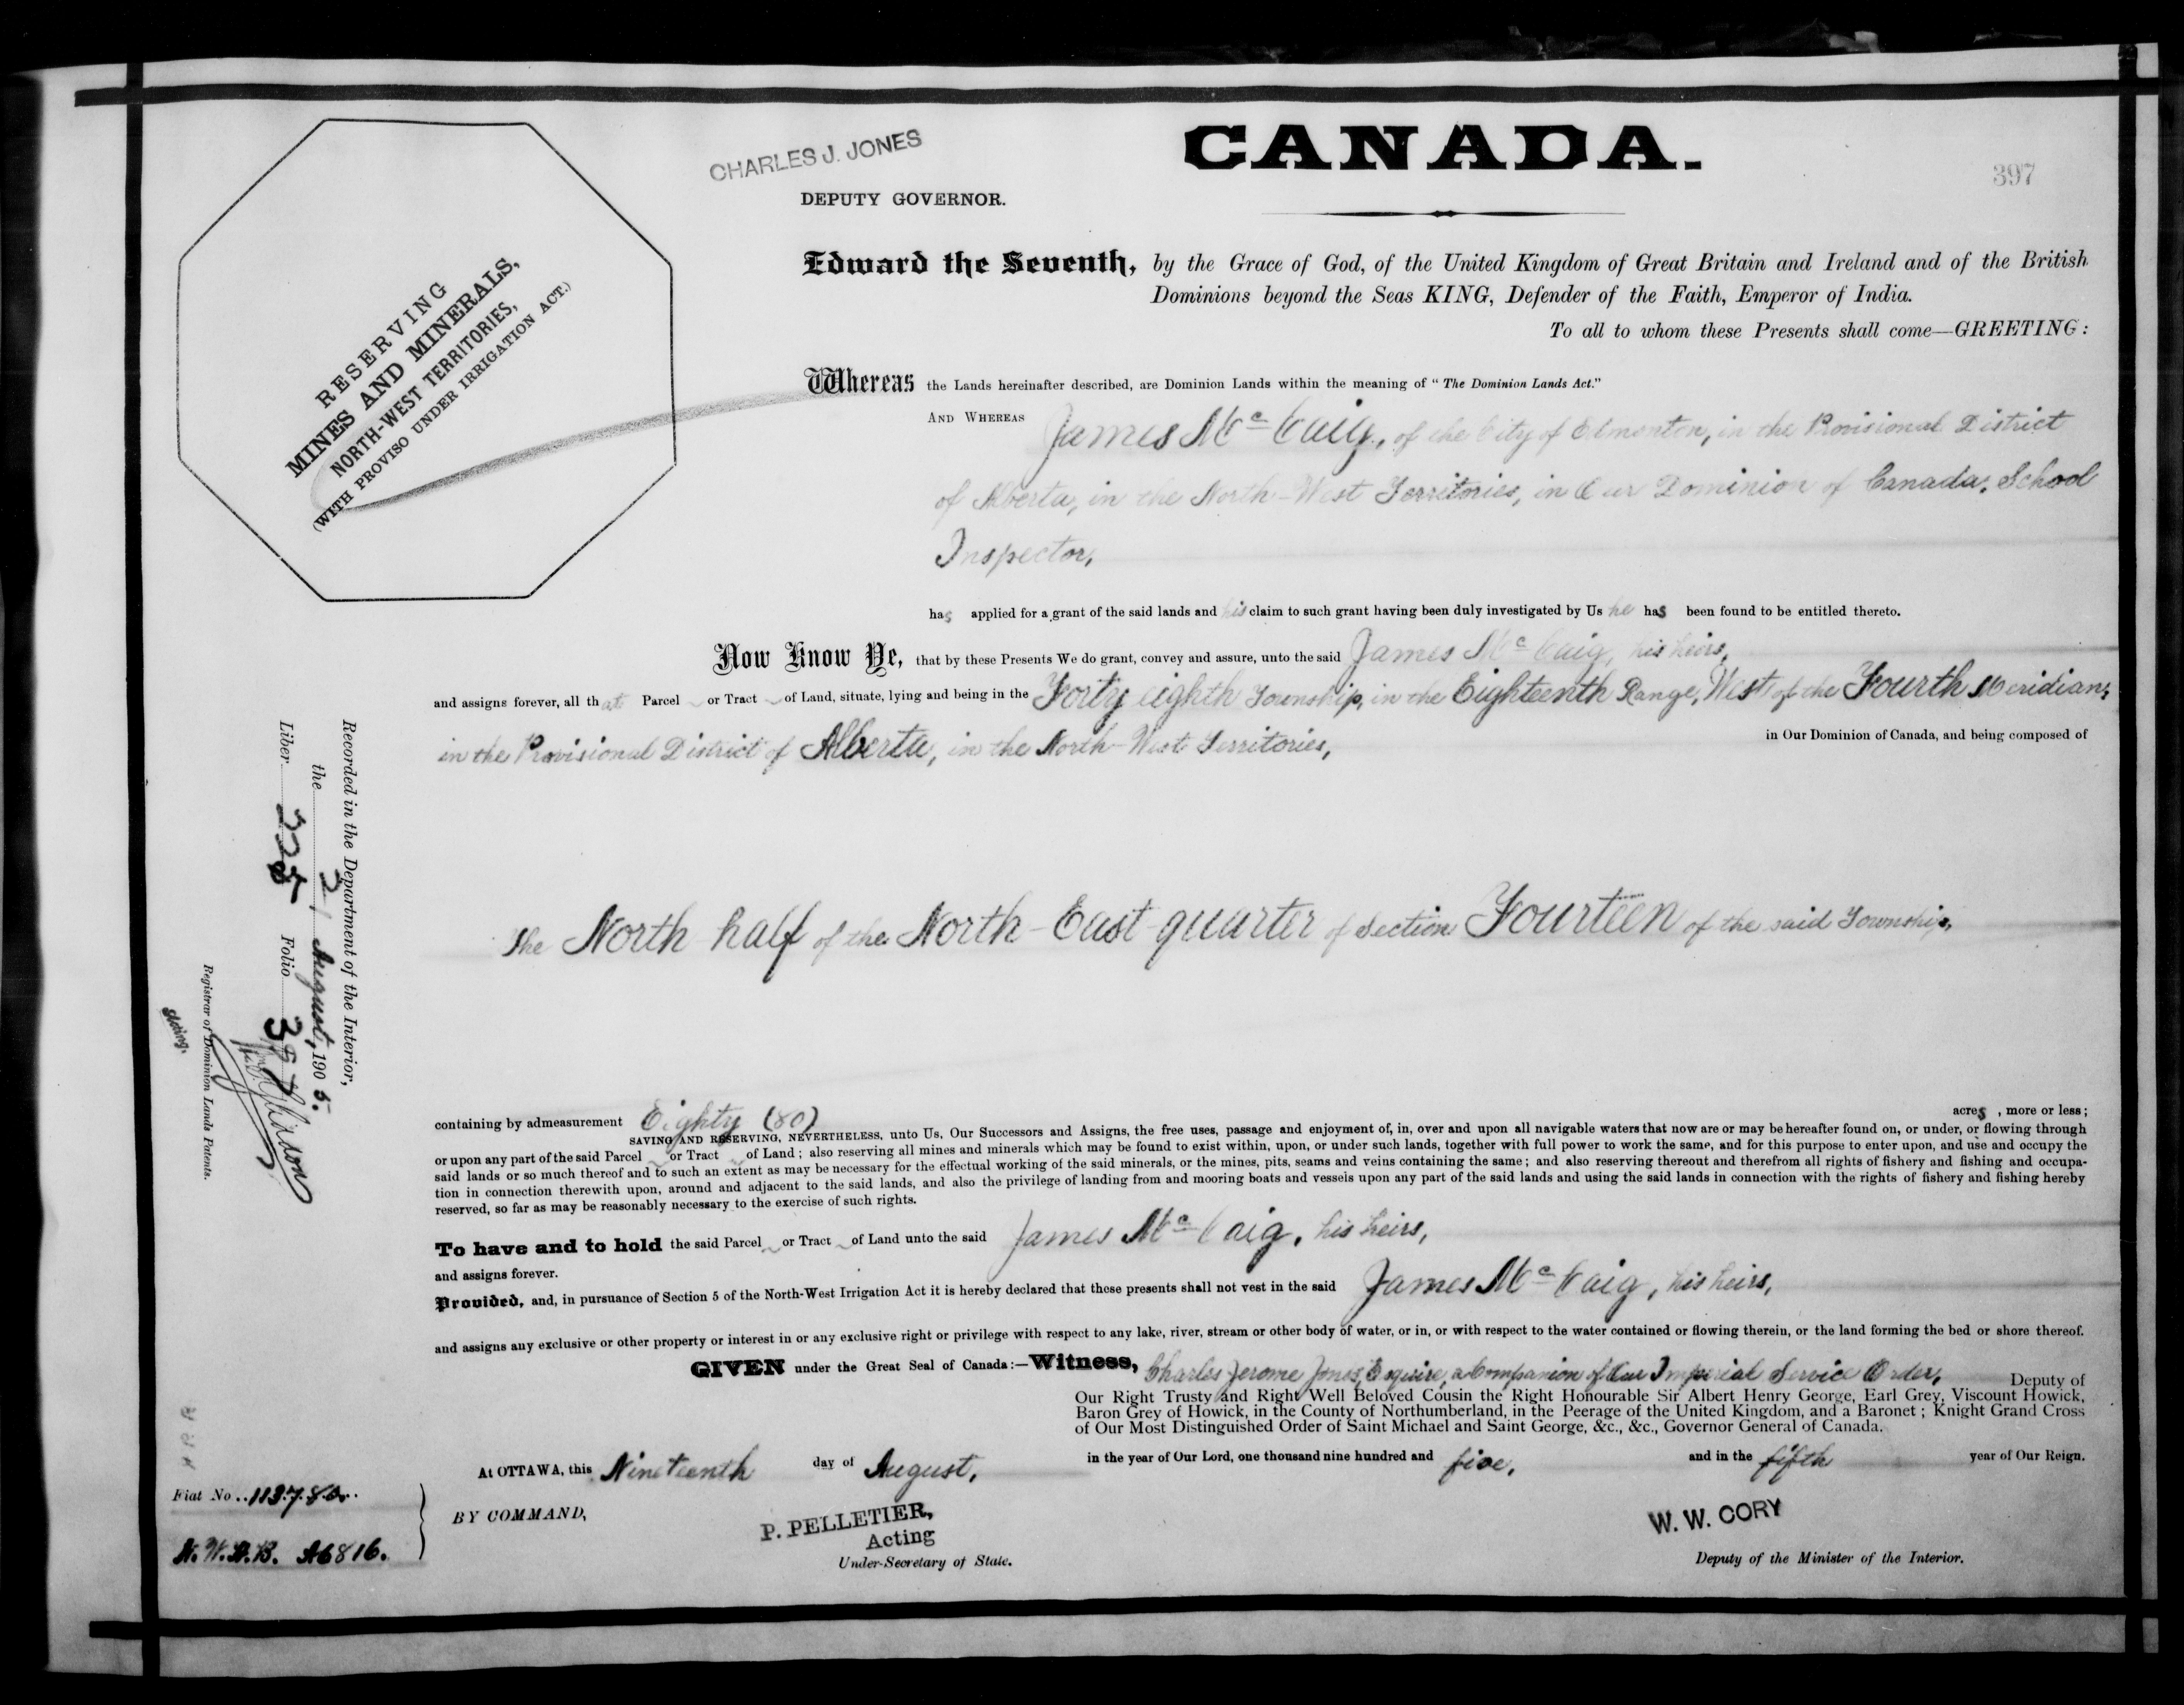 CHARLES J. JONES
DEPUTY GOVERNOR.
CANADA.
397
RESERVING
MINES AND MINERALS,
NORTH-WEST TERRITORIES,
(WITH PROVISO UNDER IRRIGATION ACT.)
Edward the Seventh, by the Grace of God, of the United Kingdom of Great Britain and Ireland and of the British
Dominions beyond the Seas KING, Defender of the Faith, Emperor of India.
To all to whom these Presents shall come—GREETING:
Whereas the Lands hereinafter described, are Dominion Lands within the meaning of "The Dominion Lands Act."
AND WHEREAS James McCaig, of the City of Edmonton, in the Provisional District
of Alberta, in the North-West Territories, in Our Dominion of Canada, School
Inspector,
has applied for a grant of the said lands and his claim to such grant having been duly investigated by Us he has been found to be entitled thereto.
Now Know Ye, that by these Presents We do grant, convey and assure, unto the said James McCaig, his heirs,
and assigns forever, all that Parcel or Tract of Land, situate, lying and being in the Forty eighth Township, in the Eighteenth Range, West of the Fourth Meridian,
in the Provisional District of Alberta, in the North-West Territories, in Our Dominion of Canada, and being composed of
The North half of the North-East quarter of Section Fourteen of the said Township,
containing by admeasurement Eighty (80) acres, more or less;
SAVING AND RESERVING, NEVERTHELESS, unto Us, Our Successors and Assigns, the free uses, passage and enjoyment of, in, over and upon all navigable waters that now are or may be hereafter found on, or under, or flowing through
or upon any part of the said Parcel or Tract of Land; also reserving all mines and minerals which may be found to exist within, upon, or under such lands, together with full power to work the same, and for this purpose to enter upon, and use and occupy the
said lands or so much thereof and to such an extent as may be necessary for the effectual working of the said minerals, or the mines, pits, seams and veins containing the same; and also reserving thereout and therefrom all rights of fishery and fishing and occupa-
tion in connection therewith upon, around and adjacent to the said lands, and also the privilege of landing from and mooring boats and vessels upon any part of the said lands and using the said lands in connection with the rights of fishery and fishing hereby
reserved, so far as may be reasonably necessary to the exercise of such rights.
To have and to hold the said Parcel or Tract of Land unto the said James McCaig, his heirs,
and assigns forever.
Provided, and, in pursuance of Section 5 of the North-West Irrigation Act it is hereby declared that these presents shall not vest in the said James McCaig, his heirs,
and assigns any exclusive or other property or interest in or any exclusive right or privilege with respect to any lake, river, stream or other body of water, or in, or with respect to the water contained or flowing therein, or the land forming the bed or shore thereof.
GIVEN under the Great Seal of Canada:—Witness, Charles Jerome Jones, Esquire, a Companion of Our Imperial Service Order, Deputy of
Our Right Trusty and Right Well Beloved Cousin the Right Honourable Sir Albert Henry George, Earl Grey, Viscount Howick,
Baron Grey of Howick, in the County of Northumberland, in the Peerage of the United Kingdom, and a Baronet; Knight Grand Cross
of Our Most Distinguished Order of Saint Michael and Saint George, &c., &c., Governor General of Canada.
At OTTAWA, this Nineteenth day of August, in the year of Our Lord, one thousand nine hundred and five, and in the fifth year of Our Reign.
BY COMMAND,
P. PELLETIER,
Acting
Under-Secretary of State.
W. W. CORY
Deputy of the Minister of the Interior.
Recorded in the Department of the Interior,
the 21 August, 1905.
Liber 225 Folio 397
Registrar of Dominion Lands Patents.
Acting.
Fiat No. 113780
N.W.A.B. A6816.